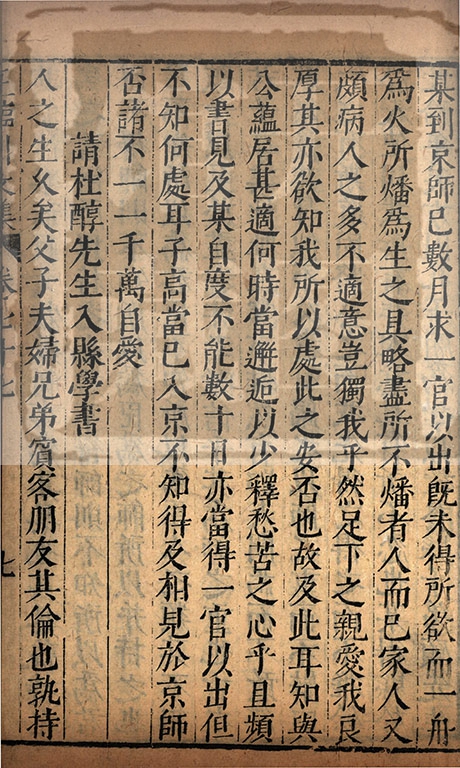 某到京師已數月求一官以出旣未得所欲而一舟
爲火所燔爲生之具略盡所不燔者人而已家人又
頗病人之多不適意豈獨我乎然足下之親愛我良
厚其亦欲知我所以處此之安否也故及此耳知與
公蘊居甚適何時當邂逅以少釋愁苦之心乎且頻
以書見及某自度不能數十日亦當得一官以出但
不知何處耳子高當已入京不知得及相見於京師
否諸不一一千萬自愛
請杜醇先生入縣學書
人之生久矣父子夫婦兄弟賓客朋友其倫也孰持
王臨川文集 卷七十七
七